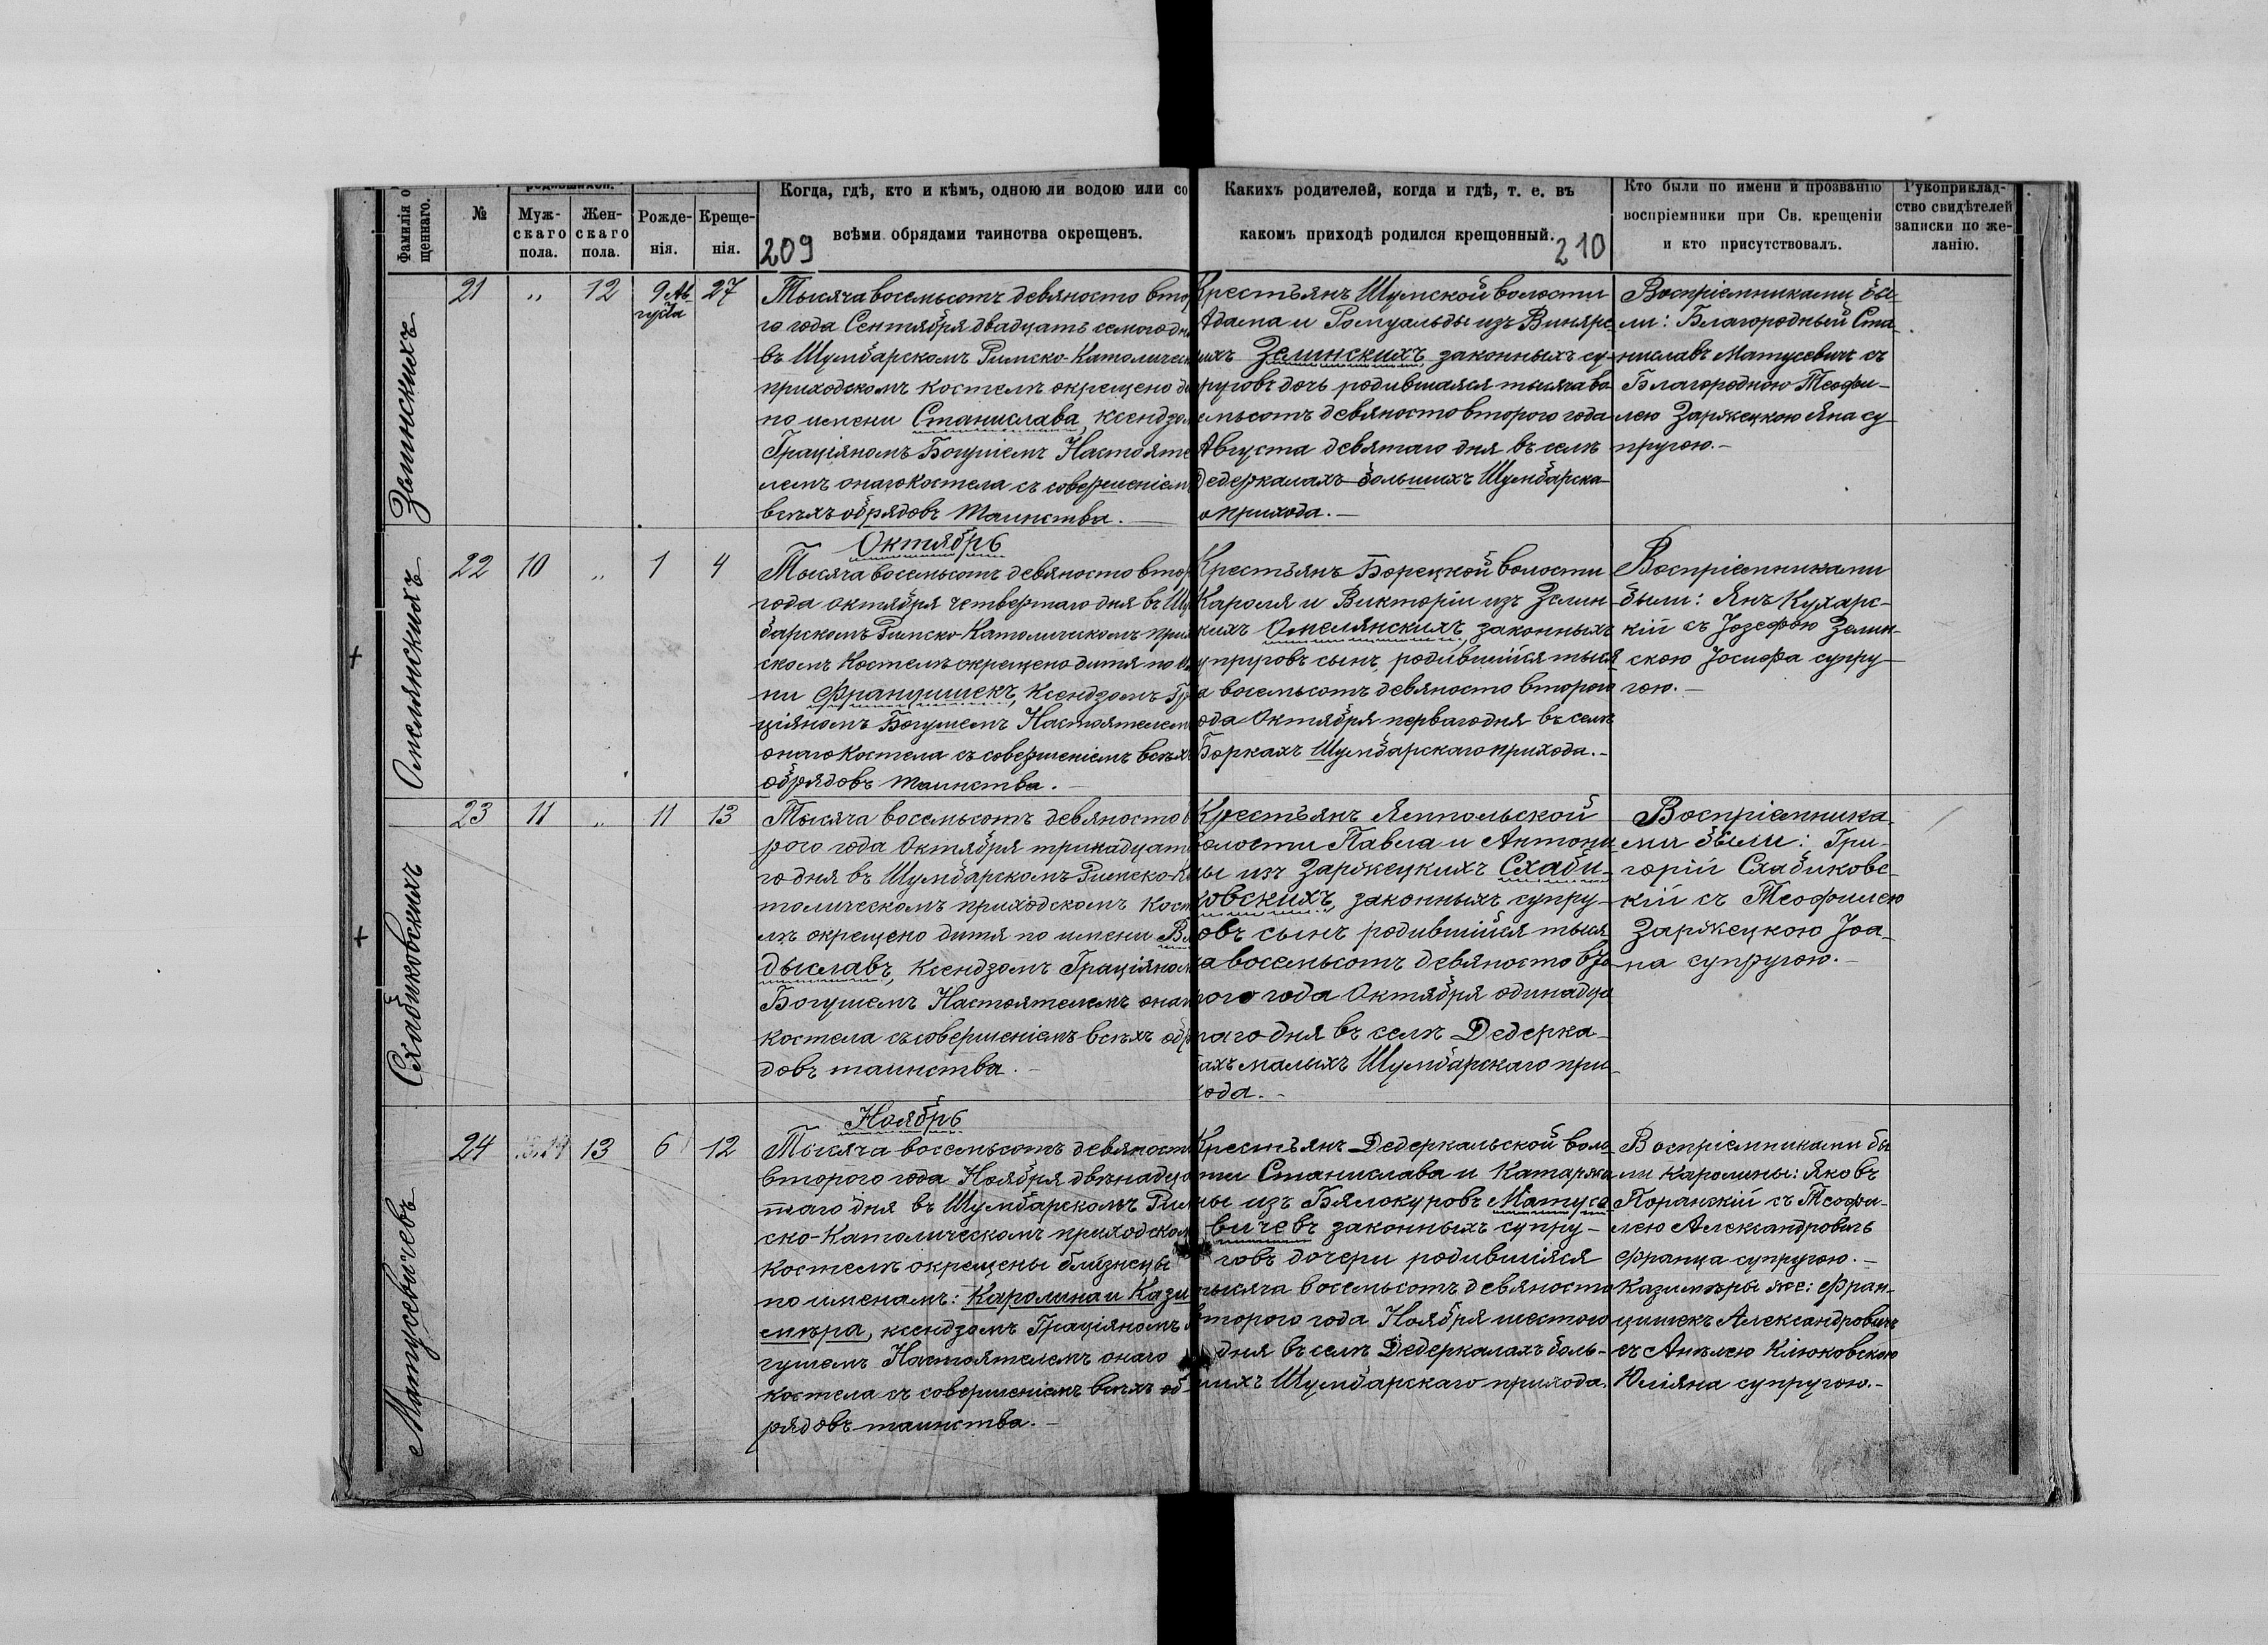 Фамилія о
щеннаго.
№
родившихся.
Муж-
скаго
пола.
Жен-
скаго
пола.
Рожде-
нія.
Креще-
нія.
Когда, гдѣ, кто и кѣмъ, одною ли водою или со
всѣми обрядами таинства окрещенъ.
209
Какихъ родителей, когда и гдѣ, т. е. въ
какомъ приходѣ родился крещенный.
210
Кто были по имени и прозванію
воспріемники при Св. крещеніи
и кто присутствовалъ.
Рукоприклад-
ство свидѣтелей
записки по же-
ланію.
Зелинскихъ
21 „ 12 9 Ав-
густа
27
Тысяча восемьсотъ девяносто вто
го года Сентября двадцать седьмого дн
въ Шумбарскомъ Римско-Католическ
приходскомъ костелѣ окрещено ди
по имени Станислава, ксендзом
Граціяномъ Богушемъ Настояте
лемъ онаго костела съ совершеніем
всѣхъ обрядовъ таинства.
Крестьянъ Шумской волости
Адама и Ромуальды изъ Винярс
ихъ Зелинскихъ, законныхъ су-
руговъ дочь родившаяся тысяча во
емьсотъ девяносто второго года
Августа девятаго дня въ селѣ
Дедеркалахъ большихъ Шумбарска-
о прихода.
Воспріемниками бы-
ли: Благородный Ста-
ниславъ Матусевичъ съ
Благородною Теофи-
лею Заржецкою Яна су-
пругою.
Омелянскихъ
22 10 „ 1 4
Октябрь
Тысяча восемьсотъ девяносто втор
года октября четвертаго дня въ Шу
барскомъ Римско-Католическомъ при
скомъ костелѣ окрещено дитя по им
ни Францишекъ, ксендзомъ Гр
ціяномъ Богушемъ Настоятелем
онаго костела съ совершеніемъ всѣхъ
обрядовъ таинства.
Крестьянъ Борецкой волости
Кароля и Викторіи изъ Зелин
кихъ Омелянскихъ, законныхъ
упруговъ сынъ, родившійся тыся
а восемьсотъ девяносто второго
ода Октября перваго дня въ селѣ
Боркахъ Шумбарскаго прихода.
Воспріемниками
были: Янъ Кухарс-
кій съ Іозефою Зелин-
скою Іосифа супру-
гою.
Схабиковскихъ
23 11 „ 11 13
Тысяча восемьсотъ девяносто в
рого года Октября тринадцат
го дня въ Шумбарскомъ Римско-К
толическомъ приходскомъ кост
лѣ окрещено дитя по имени Вл
дыславъ, ксендзомъ Граціяном
Богушемъ Настоятелемъ онаг
костела съ совершеніемъ всѣхъ обр
довъ таинства.
Крестьянъ Ямпольской
олости Павла и Антони
ы изъ Заржецкихъ Схаби-
ковскихъ, законныхъ супру-
овъ сынъ родившійся тыся
а восемьсотъ девяносто вто
рого года Октября одинадца
таго дня въ селѣ Дедерка-
ахъ малыхъ Шумбарскаго при-
хода.
Воспріемника-
ми были: Гри-
горій Схабиковс-
кій съ Теофилею
Заржецкою Іоа-
на супругою.
Матусевичевъ
24 13 6 12
Ноябрь
Тысяча восемьсотъ девяност
второго года Ноября двѣнадца
таго дня въ Шумбарскомъ Рим
ско-Католическомъ приходском
костелѣ окрещены близнецы
по именамъ: Каролина и Кази
мѣра, ксендзомъ Граціяномъ Б
гушемъ Настоятелемъ онаго
костела съ совершеніемъ всѣхъ об-
рядовъ таинства.
Крестьянъ Дедеркальской воло
ти Станислава и Катаржи
ны изъ Бялокуровъ Матусе
вичевъ законныхъ супру-
говъ дочери родившіяся
тысяча восемьсотъ девяносто
второго года Ноября шестого
дня въ селѣ Дедеркалахъ боль-
шихъ Шумбарскаго прихода.
Воспріемниками бы
ли Каролины: Яковъ
съ Теофи-
лею Александровичъ
Франца супругою.
Казимѣры же: Фран-
цишекъ Александровичъ
съ Анѣлею Клюковскою
Юліяна супругою.